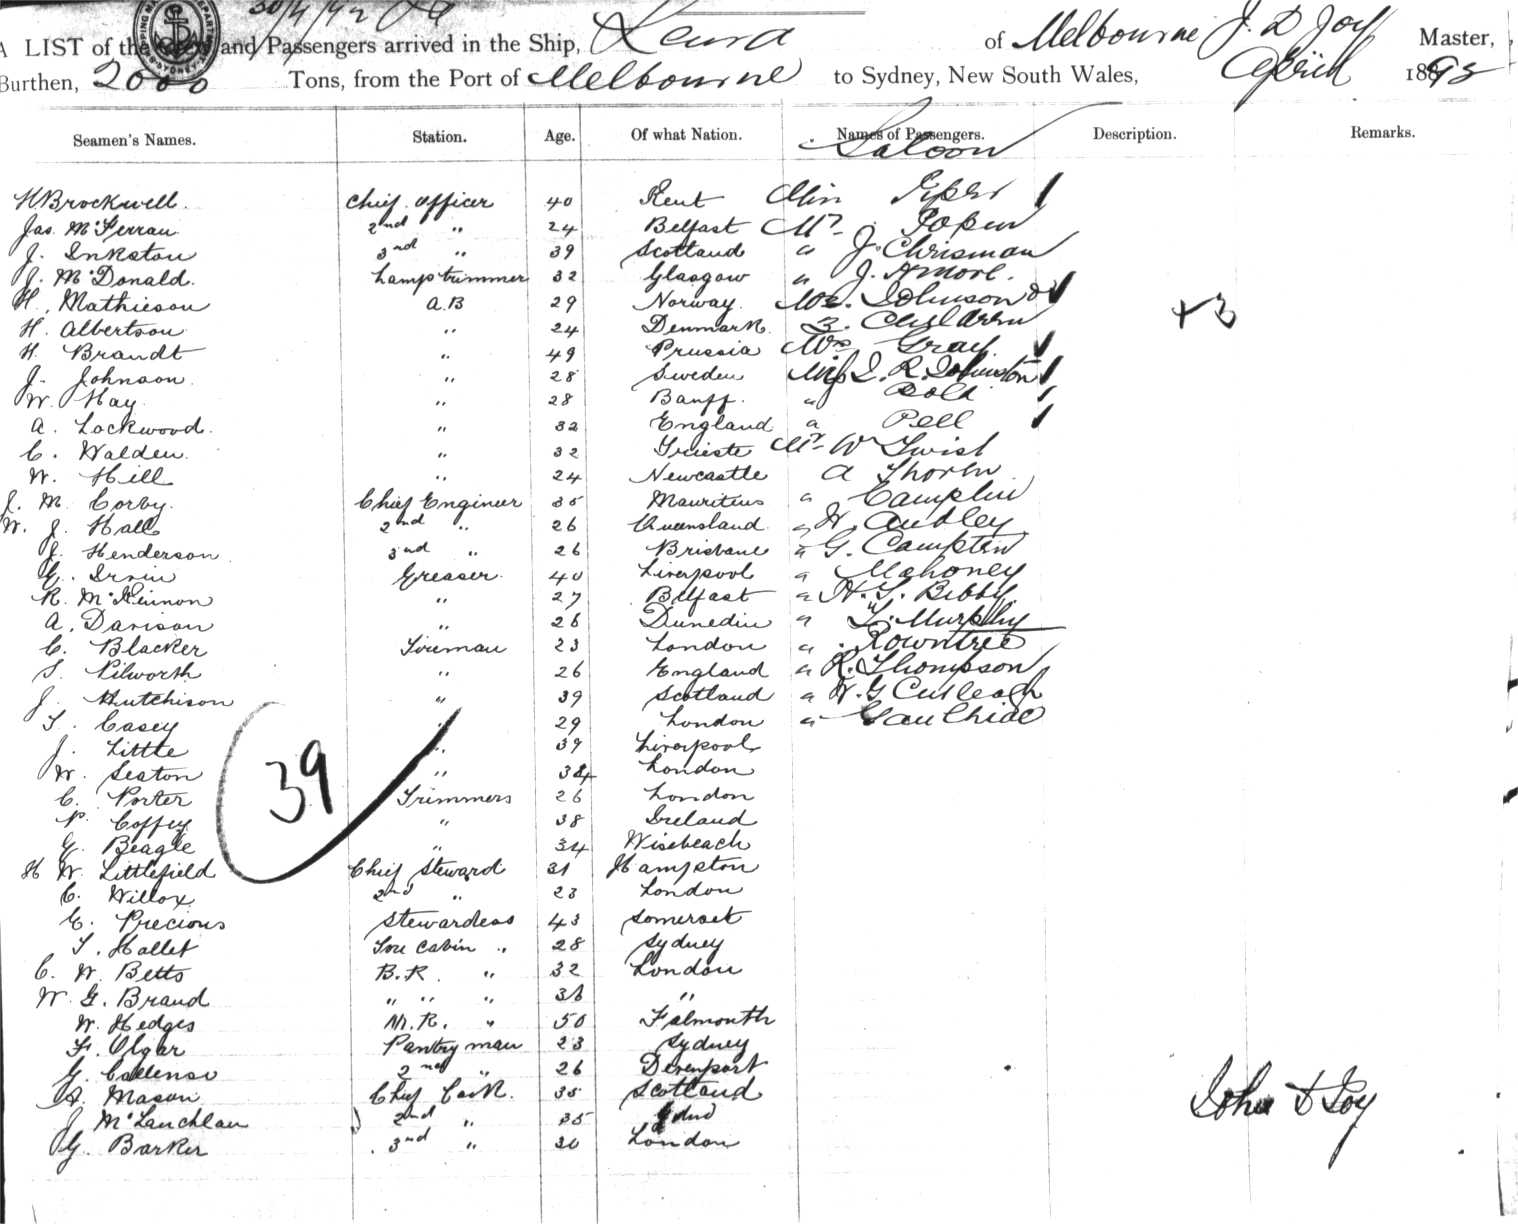 30/4/92
A LIST of the Crew and Passengers arrived in the Ship, of Melbourne J. D Joy Master,
Burthen, 2000 Tons, from the Port of Melbourne to Sydney, New South Wales, April 189
Seamen's Names. Station. Age. Of what Nation. Names of Passengers. Description. Remarks.
Saloon
H Brockwell. Chief Officer 40 Kent
Jas. McFerran 2nd " 24 Belfast Mr.
J. Inkston 3rd " 39 Scotland " J. Chrisman
J. McDonald. Lamptrimmer 32 Glasgow " J. Amore.
H. Mathieson A.B 29 Norway. Mrs. Johnson &
H. Albertson " 24 Denmark 3. Children +3
H. Brandt " 49 Prussia Mrs Gray
J. Johnson " 28 Sweden Miss J. R. Johnston
W. Hay " 28 Banff. "
A. Lockwood. " 32 England " Pell
C. Walden. " 32 Trieste Mr W Twist
W. Hill " 24 Newcastle A Thorn
J. M. Corby. Chief Engineer 35 Mauritius " Camplin
W. J. Hall 2nd " 26 Queensland " H. Audley
J. Henderson 3rd " 26 Brisbane " G. Campton
G. Irvin Greaser. 40 Liverpool " Mahoney
R. McKinnon " 27 Belfast " H. G. Bibby
A. Davison " 26 Dunedin " T. Murphy
C. Blacker Fireman 23 London " Rowntree
S. Pilworth " 26 England " R. Thompson
J. Hutchison " 39 Scotland " W. G
T. Casey " 29 London "
J. Little " 39 Liverpool
W. Seaton " 34 London
39
C. Porter Trimmers 26 London
P. Coffey " 38 Ireland
G. Beagle " 34 Wisebeach
H W. Littlefield Chief Steward 31 Hampton
C. Willox 2nd " 23 London
E. Precious Stewardess 43 Somerset
T. Hallet Fore Cabin " 28 Sydney
C. W. Betts B.R. " 32 London
W. G. Braud " " " 36 "
W. Hedges M.R. " 50 Falmouth
F. Olgar Pantryman 23 Sydney
G. Callenso 2nd " 26 Devenport
A. Mason Chief Cook. 35 Scotland
J McLauchlan 2nd " 35
G. Barker 3rd " 30 London
John D Joy